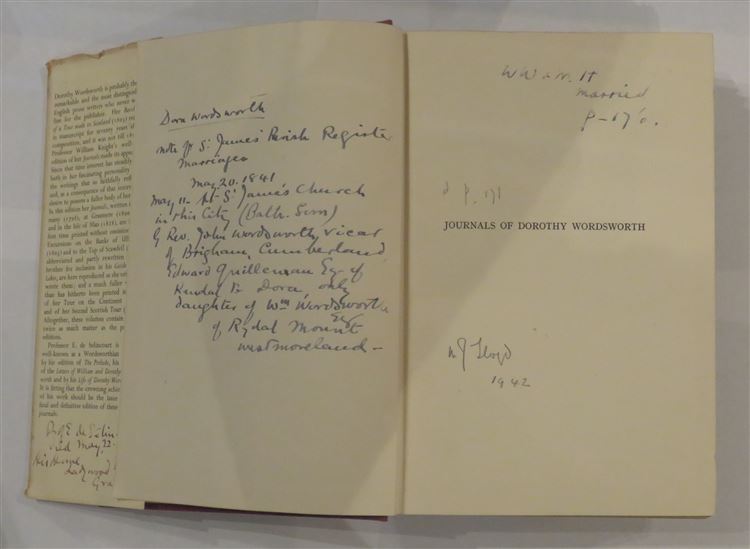 Dorothy Wordsworth is probably the
remarkable and the most distinguished
English prose writers who never w
line for the publisher. Her Recol
of a Tour made in Scotland (1803) rem
in manuscript for seventy years af
composition, and it was not till 18
Professor William Knight's well-
edition of her Journals made its appe
Since that time interest has steadily
both in her fascinating personality
the writings that so faithfully refl
and, as a consequence of that interest
desire to possess a fuller body of her
In this edition her Journals, written
many (1798), at Grasmere (1800
and in the Isle of Man (1828), are
first time printed without omission
Excursions on the Banks of Ulls
(1805) and to the Top of Scawfell (
abbreviated and partly rewritten
brother for inclusion in his Guide
Lakes, are here reproduced as she wrote
them; and a much fuller
than has hitherto been printed is
of her Tour on the Continent
and of her Second Scottish Tour (
Altogether, these volumes contain
twice as much matter as the p
Professor E. de Selincourt is
well-known as a Wordsworthian
by his edition of The Prelude, his
of the Letters of William and Dorothy
worth and by his Life of Dorothy Wor
It is fitting that the crowning achie
of his work should be the issue
final and definitive edition of these
journals.
Prof E de Sélin
died May, 22
His Home
Ladywood
Gra
Dora Wordsworth
note fr St. James' Parish Register
Marriages
May 20. 1841
May 11. At St James's Church
in this City (Bath. Som)
by Rev. John Wordsworth, Vicar
of Brigham, Cumberland
Edward Quillinan Esq of
Kendal to Dora, only
daughter of Wm Wordsworth
Esq
of Rydal Mount
Westmoreland -
WW & M. H
married
p - 176.
p. 171
JOURNALS OF DOROTHY WORDSWORTH
Lloyd
1942